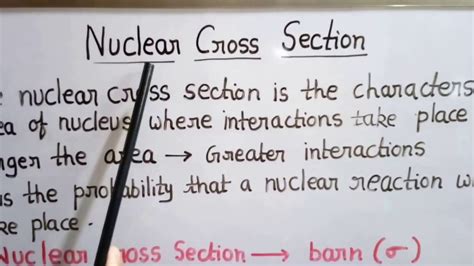 Nuclear Cross Section
e nuclear cross section is the characters
ea of nucleus where interactions take place
nger the area → Greater interactions
is the probability that a nuclear reaction w
ke place.
Nuclear Cross Section → barn (σ)